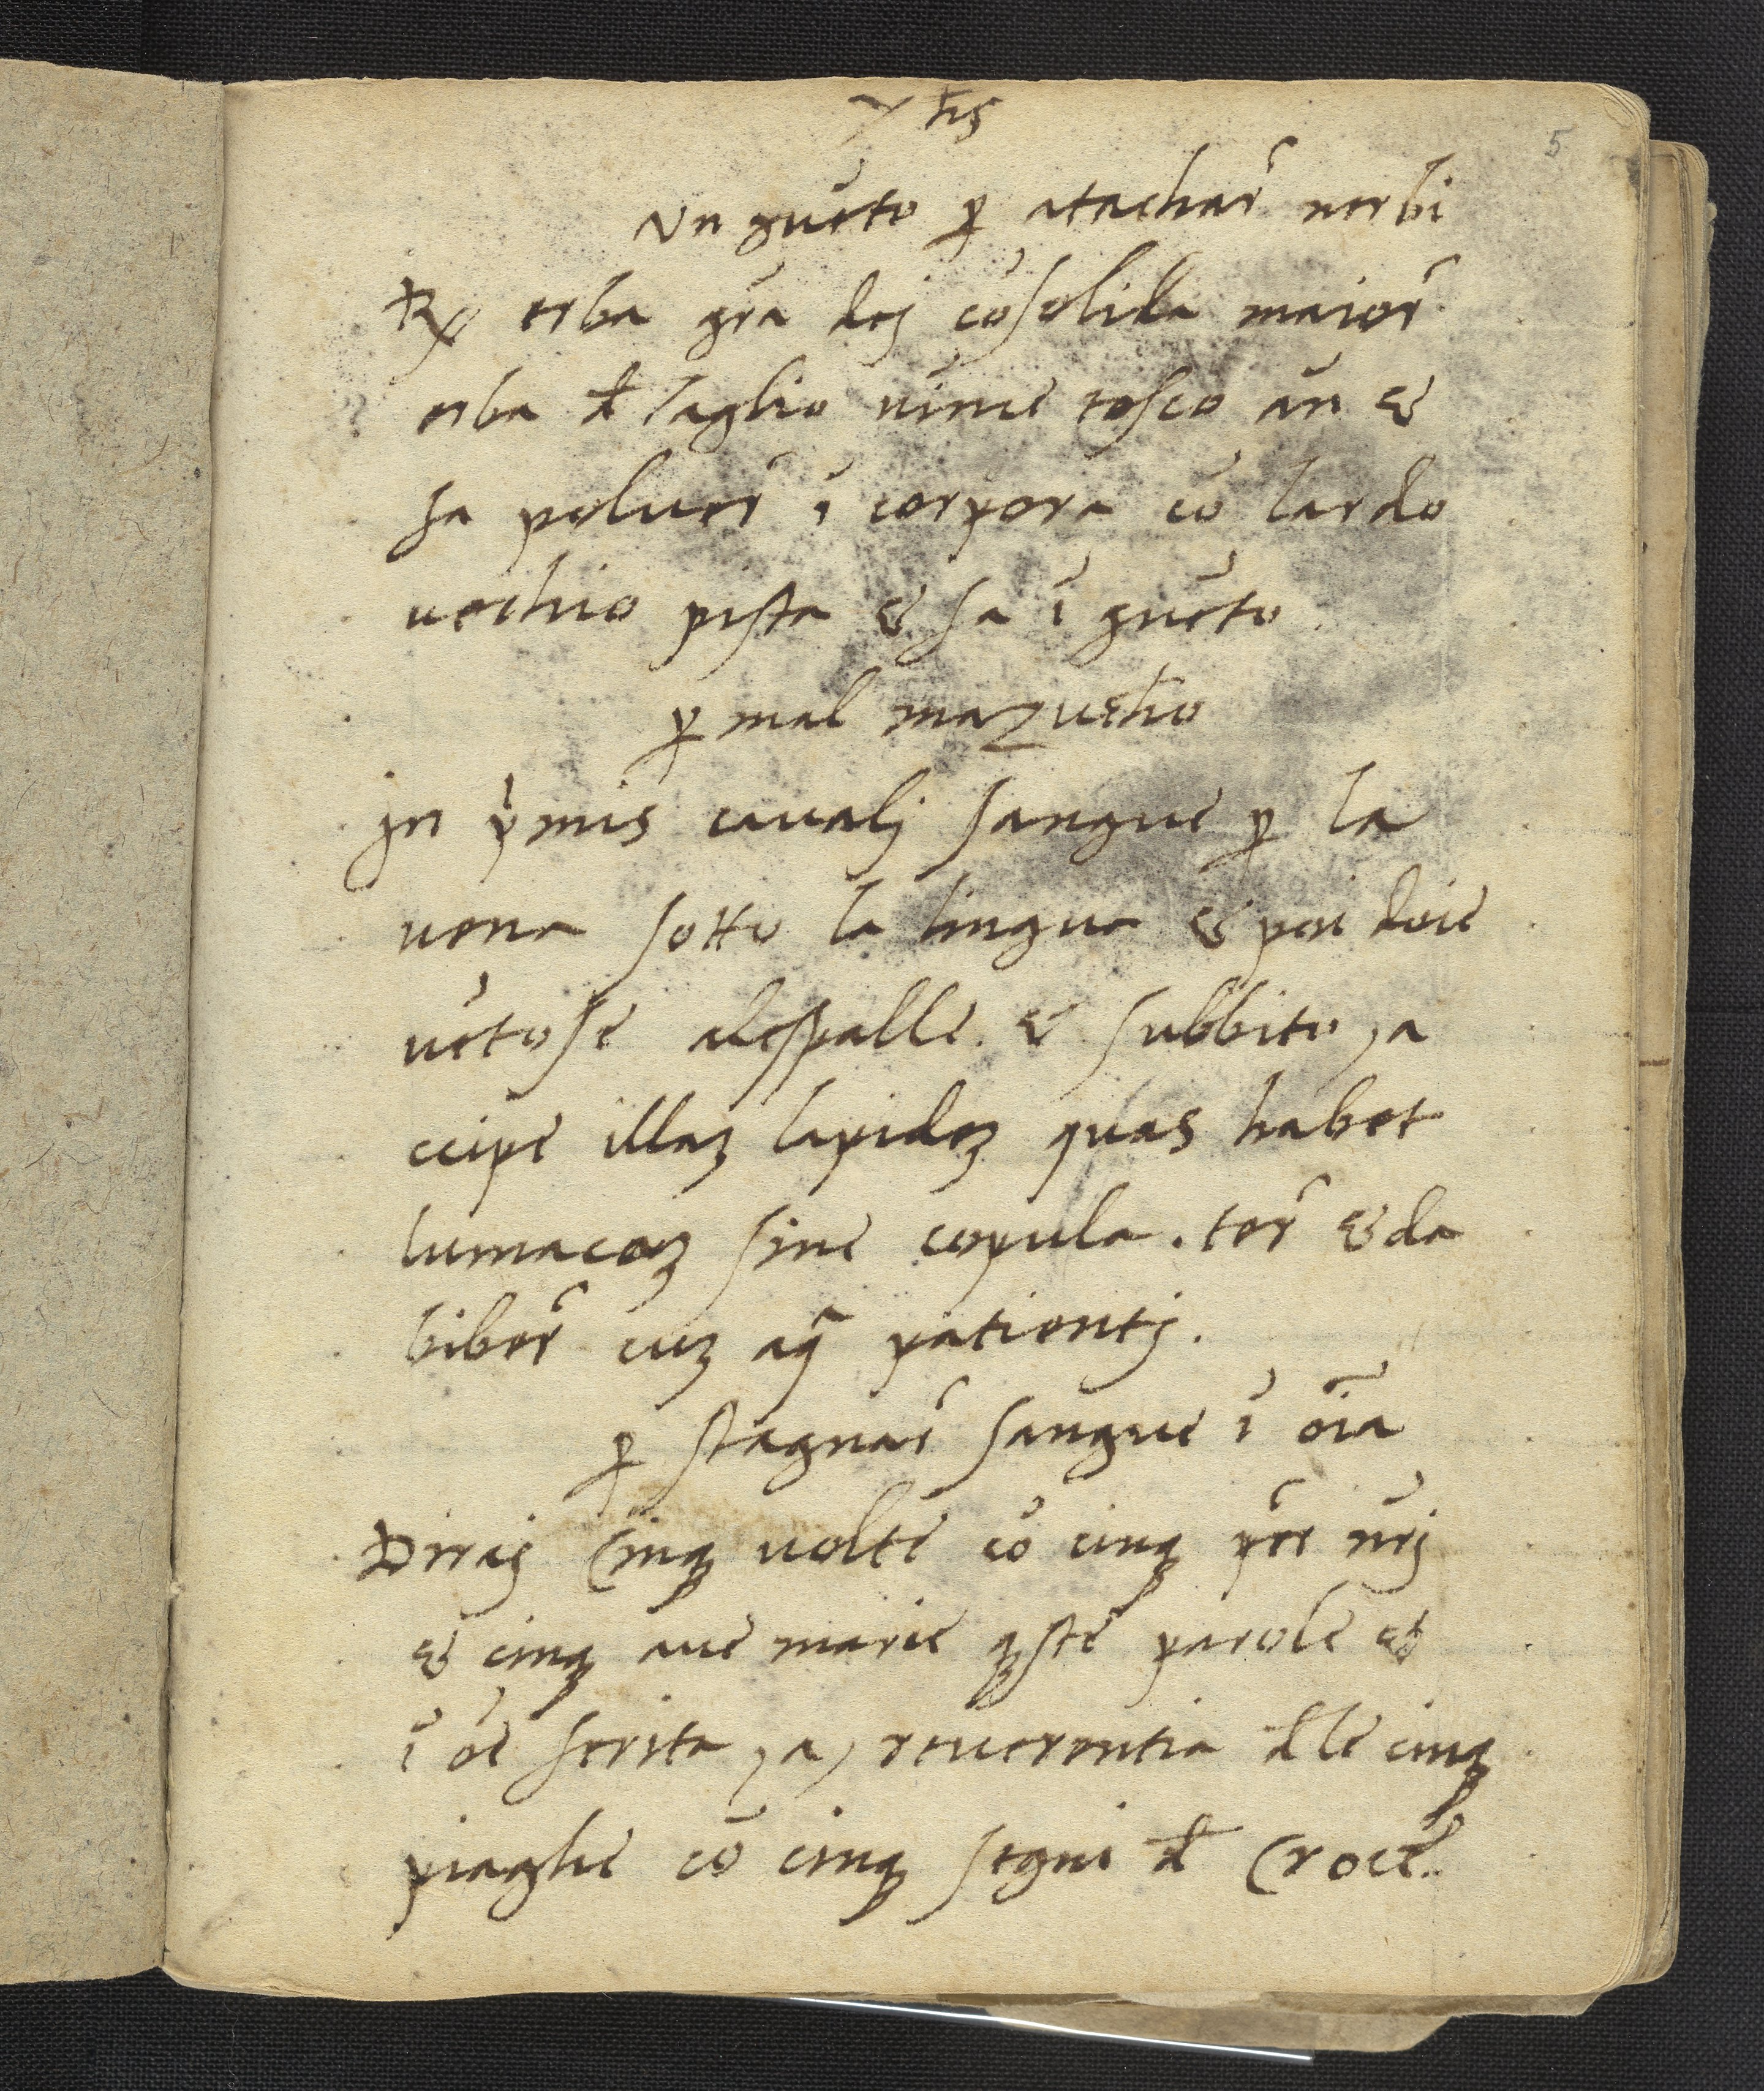 yhs
5
Vn guēto ꝑ atachar̄ nerbi
℞ erba gr̄a dej cōsolida maior̄
erba đ taglio uīnie tosco an̄ &
fa poluer̄ ī corpora cō lardo
uechio pista & fa ī guēto
ꝑ mal mazucho
In p̄mis caualj sangue ꝑ la
uena sotto la lingua & poi doie
uētose alespalle & subbito a
ccipe illaʒ lapideʒ quas habet
lumacaʒ sine copula. ter̄ & da
biber̄ cuʒ aq̄ patientj.
ꝑ stagnar̄ sangue ī oīa
Diraj Cinqʒ uolte cō cinqʒ pr̄e nr̄j
& cinqʒ aue marie qʒste parole &
ī ōe ferita, a, reuerentia đle cinqʒ
piaghe cō cinqʒ segni đ Croce.